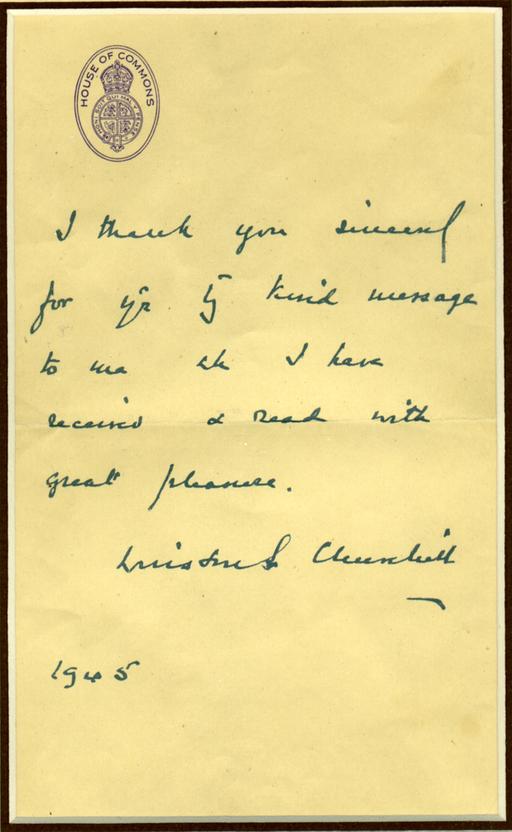 HOUSE OF COMMONS
HONI SOIT QUI MAL Y PENSE
I thank you sincerely
for yr vy kind message
to me wh I have
received & read with
great pleasure.
Winston S. Churchill
1945